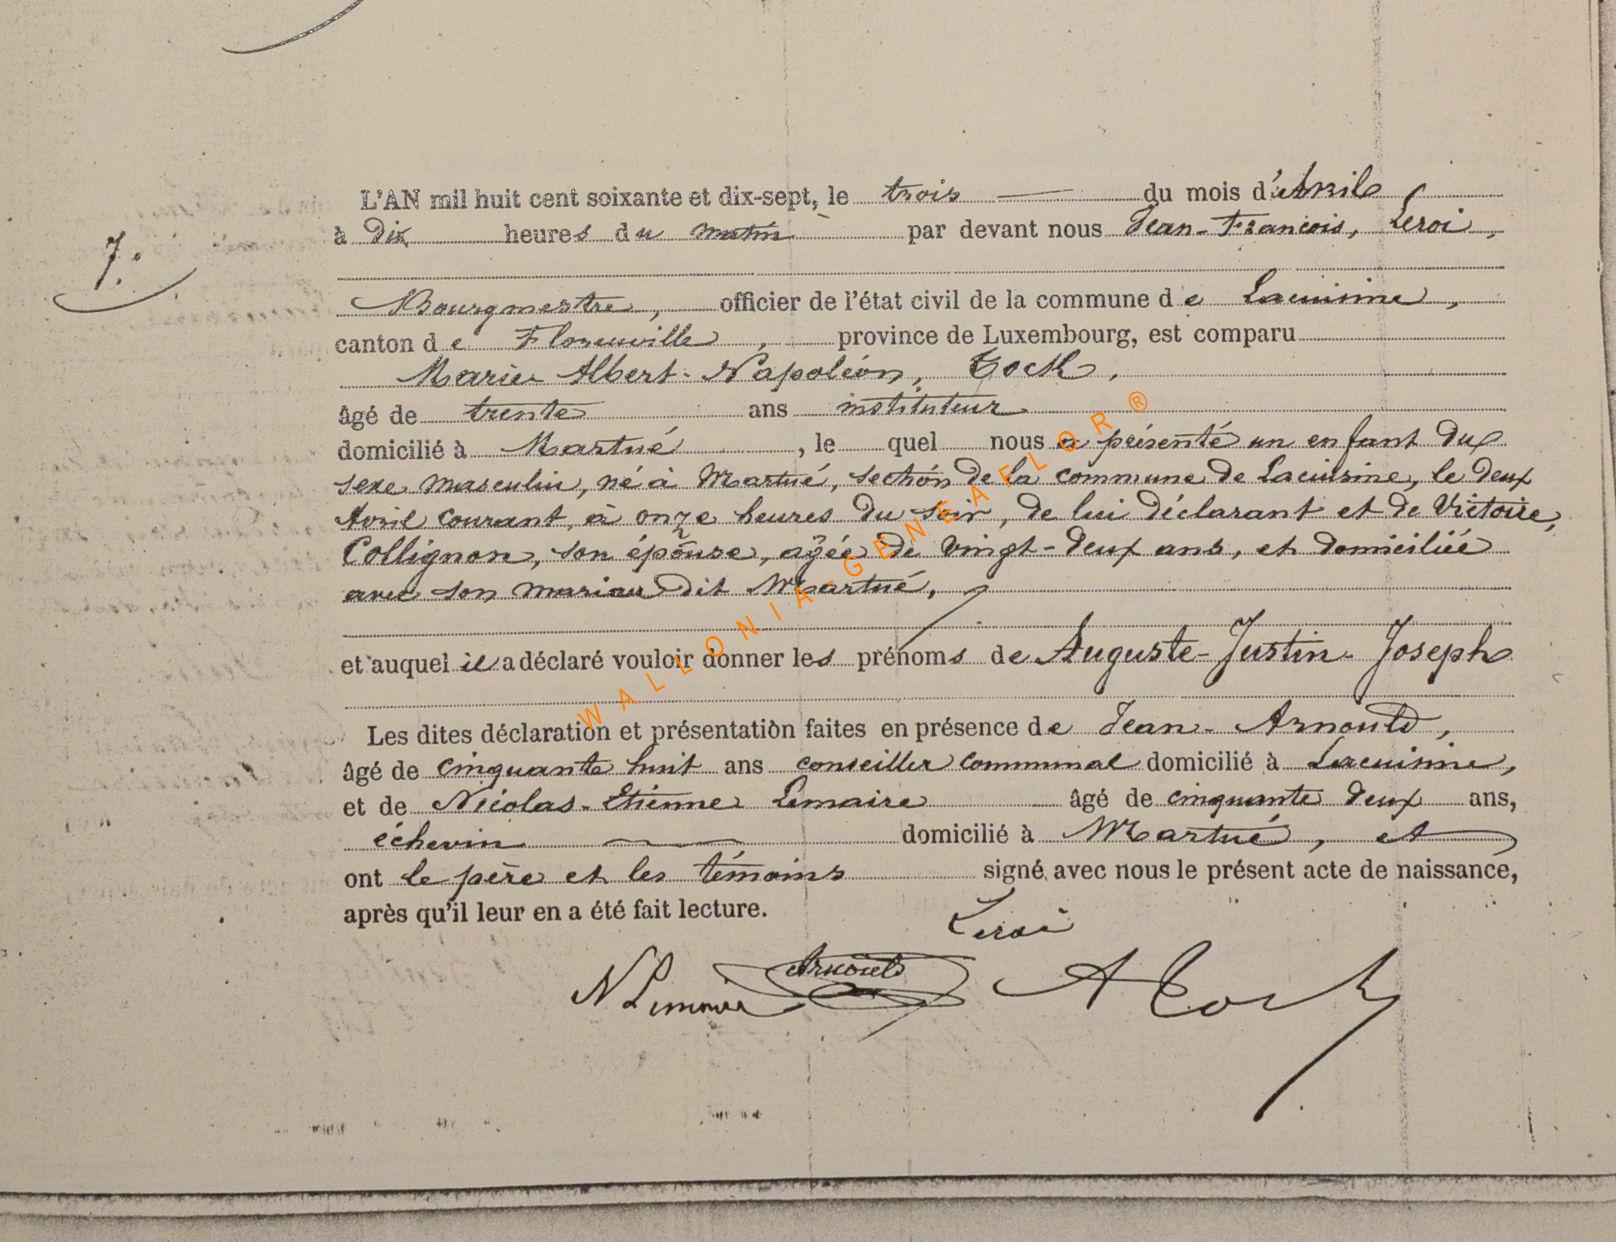 L'AN mil huit cent soixante et dix-sept, le trois du mois d'Avril
7.
à dix heures du matin par devant nous Jean-François, Leroi,
Bourgmestre, officier de l'état civil de la commune de Lacuisine,
canton de Florenville, province de Luxembourg, est comparu
Marie Albert-Napoléon, Tock,
âgé de trente ans instituteur
domicilié à Martué, le quel nous a présenté un enfant du
sexe masculin, né à Martué, section de la commune de Lacuisine, le deux
Avril courant, à onze heures du soir, de lui déclarant et de Victoire,
Collignon, son épouse, agée de vingt-deux ans, et domiciliée
avec son mari au dit Martué,
et auquel il a déclaré vouloir donner les prénoms de Auguste-Justin-Joseph
Les dites déclaration et présentation faites en présence de Jean-Arnould,
âgé de cinquante huit ans conseiller communal domicilié à Lacuisine,
et de Nicolas-Etienne Lemaire âgé de cinquante deux ans,
échevin domicilié à Martué, et
ont le père et les témoins signé avec nous le présent acte de naissance,
après qu'il leur en a été fait lecture.
Leroi
N Lemaire Arnould A Tock
WALLONIA-GENEAFLOR®